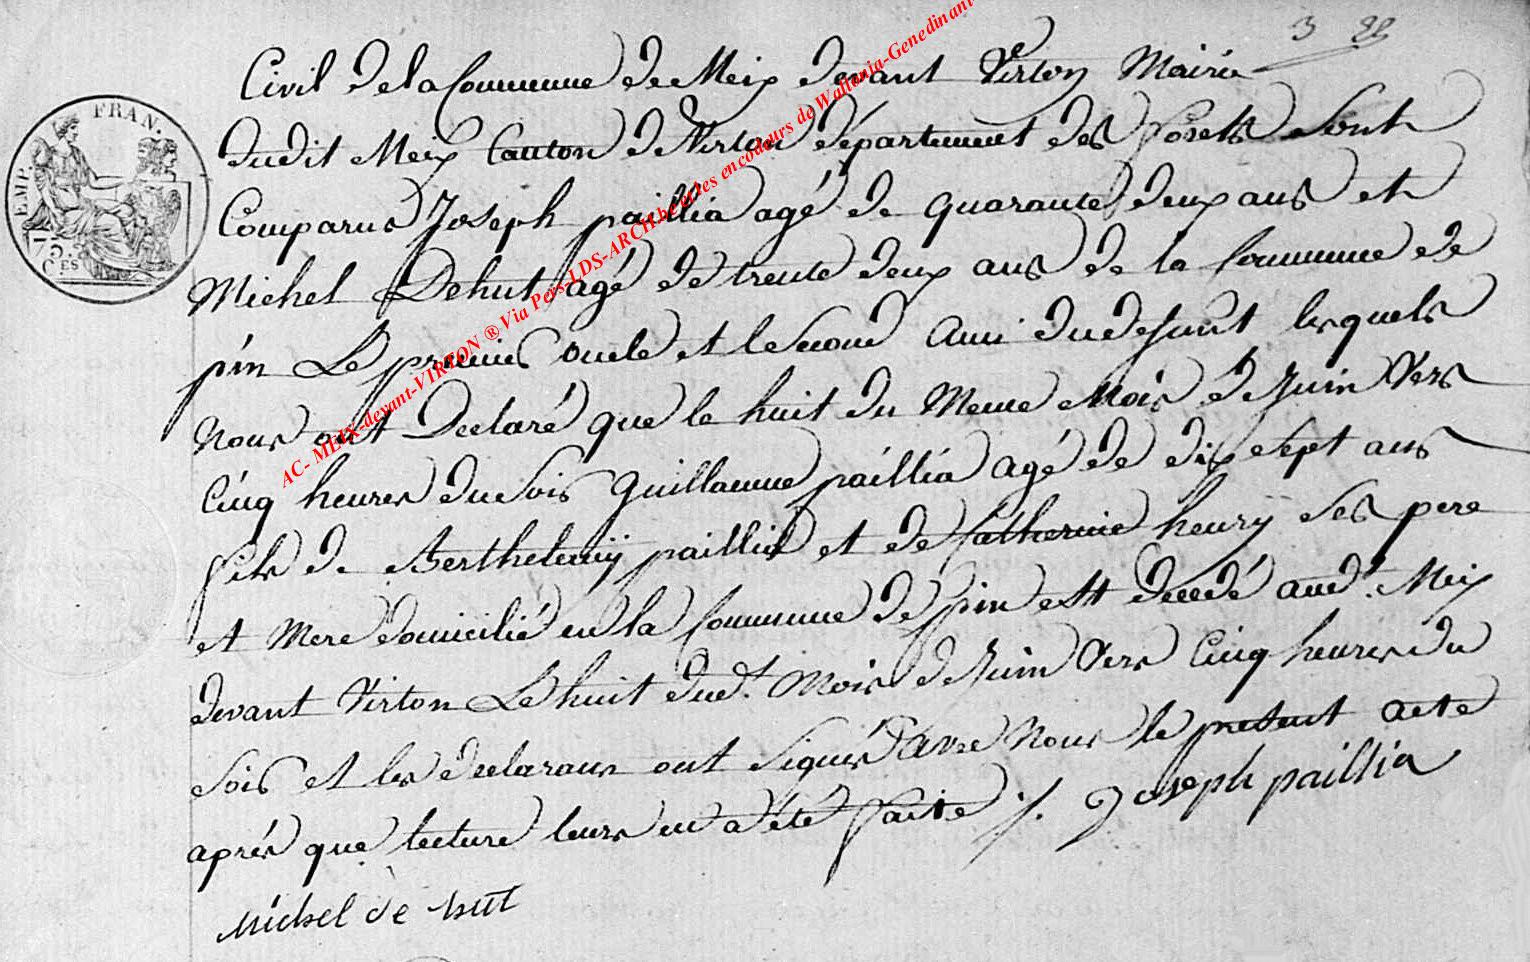 3
Civil de la Commune de Meix devant Virton Mairie
dudit Meix Canton de Virton département des forets sont
Comparus Joseph paillia agé de quarante deux ans et
Michel Dehut agé de trente deux ans de la Commune de
pin Le premier oncle et le second ami du defunt lesquels
nous ont Declaré que le huit du Meme Mois de Juin Vers
Cinq heures du soir Guillaume paillia agé de dix sept ans
fils de Berthelemÿ paillia et de Catherine henrÿ ses pere
et Mere domicilié en la Commune de pin est decedé aud.t Meix
devant Virton Le huit dud.t Mois de Juin Vers Cinq heures du
soir et les declarans ont signés avec nous le present acte
aprés que lecture leurs en a été faite ./. Joseph paillia
Michel de hut
FRAN.
EMP.
CES
AC- MEIX-devant-VIRTON ® Via Pers-LDS-ARCH.be et les encodeurs de Wallonia-Genedinant